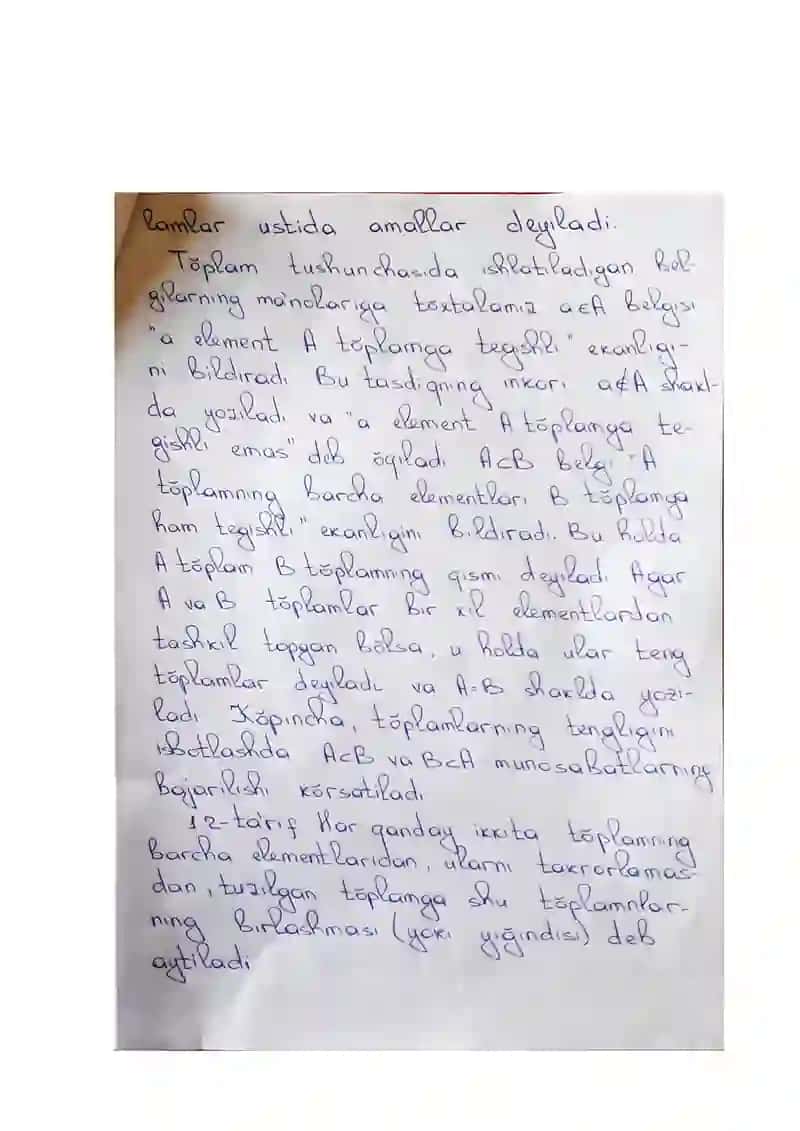 lamlar ustida amallar deyiladi.
Tŏplam tushunchasida ishlatiladigan bel-
gilarning ma'nolariga tŏxtalamiz a∈A belgisi
"a element A tŏplamga tegishli" ekanligi-
ni bildiradi Bu tasdiqning inkori a∉A shakl-
da yoziladi va "a element A tŏplamga te-
gishli emas" deb ŏqiladi A⊂B belgi "A
tŏplamning barcha elementlari B tŏplamga
ham tegishli" ekanligini bildiradi. Bu holda
A tŏplam B tŏplamning qismi deyiladi Agar
A va B tŏplamlar bir xil elementlardan
tashkil topgan bŏlsa, u holda ular teng
tŏplamlar deyiladi va A=B shaklda yozi-
ladi Kŏpincha, tŏplamlarning tengligini
isbotlashda A⊂B va B⊂A munosabatlarning
bajarilishi kŏrsatiladi
12-ta'rif Har qanday ikkita tŏplamning
barcha elementlaridan, ularni takrorlamas-
dan, tuzilgan tŏplamga shu tŏplamnlar-
ning birlashmasi (yoki yiğindisi) deb
aytiladi